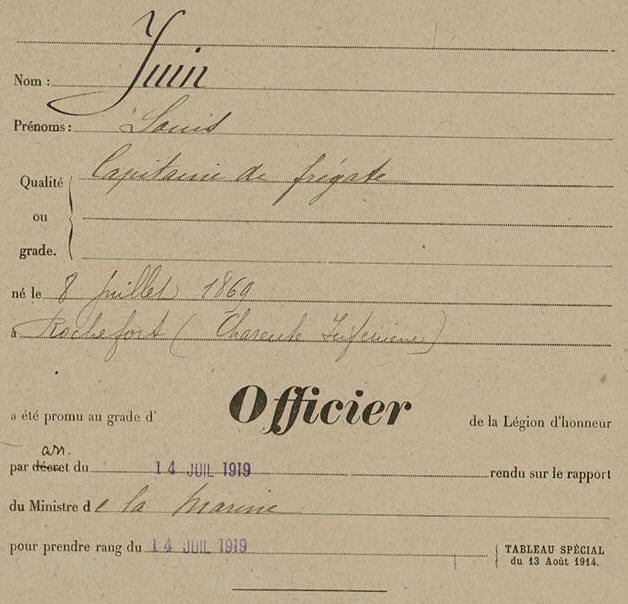 Nom : Juin
Prénoms : Louis
Qualité Capitaine de frégate
ou
grade.
né le 8 Juillet 1869
à Rochefort (Charente Inférieure)
a été promu au grade d' Officier de la Légion d'honneur
arr.
par décret du 14 JUIL 1919 rendu sur le rapport
du Ministre de la Marine
pour prendre rang du 14 JUIL 1919 TABLEAU SPÉCIAL
du 13 Août 1914.